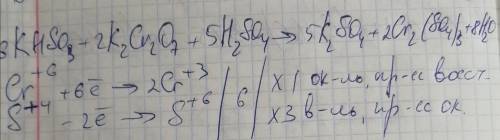 3KHSO3 + 2K2Cr2O7 + 5H2SO4 → 5K2SO4 + 2Cr2(SO4)3 + 8H2O
Cr+6 +6ē → 2Cr+3 | 6 | x1 ок-ль, пр-сс восст.
S+4 -2ē → S+6 x3 в-ль, пр-сс ок.